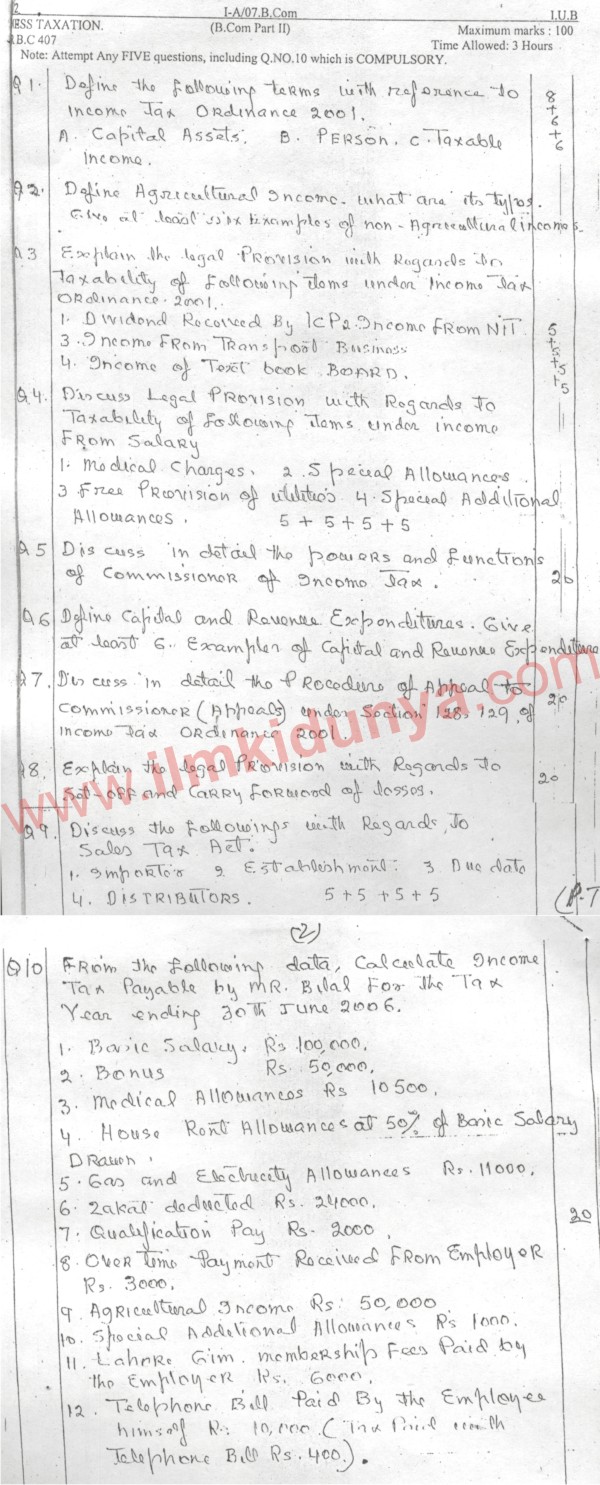 2
I-A/07.B.Com
I.U.B
ESS TAXATION.
(B.Com Part II)
Maximum marks : 100
B.C 407
Time Allowed: 3 Hours
Note: Attempt Any FIVE questions, including Q.NO.10 which is COMPULSORY.
Q1. Define the following terms with reference to
Income Tax Ordinance 2001.
A. Capital Assets. B. PERSON. C. Taxable
income.
8+6+6
Q2. Define Agricultural Income. what are its types.
Give at least six Examples of non-Agricultural incomes.
Q3 Explain the legal Provision with Regards to
Taxability of following items under Income Tax
Ordinance. 2001.
1. Dividend Received By ICP 2. Income FROM NIT.
3. Income From Transport Business
4. Income of Text book BOARD.
5+5+5+5
Q4. Discuss Legal Provision with Regards to
Taxability of following items under income
From Salary
1. Medical Charges. 2. Special Allowances.
3 Free Provision of utilities 4. Special Additional
Allowances. 5 + 5 + 5 + 5
Q5 Discuss in detail the powers and functions
of Commissioner of Income Tax.
20
Q6 Define Capital and Revenue Expenditures. Give
at least 6.. Examples of Capital and Revenue Expenditure
Q7. Discuss in detail the Procedure of Appeal to
Commissioner (Appeals) under Section 128, 129, of
Income Tax Ordinance 2001.
20
Q8. Explain the legal Provision with Regards to
Set-off and Carry Forward of losses.
20
Q9. Discuss the followings with Regards to
Sales Tax Act.
1. Importer 2 Establishment: 3. Due date
4. DISTRIBUTORS. 5+5+5+5
(P.T
www.ilmkidunya.com
(2)
Q10 From the following data, Calculate Income
Tax Payable by MR. Bilal For the Tax
Year ending 30th June 2006.
1. Basic Salary. Rs 100,000.
2. Bonus Rs. 50,000.
3. Medical Allowances Rs 10500.
4. House Rent Allowances at 50% of Basic Salary
Drawn.
5. Gas and Electricity Allowances Rs. 11000.
6. Zakat deducted Rs. 24000.
7. Qualification Pay Rs. 2000.
8. Over time Payment Received From Employer
Rs. 3000.
9. Agricultural Income Rs. 50,000
10. Special Additional Allowances Rs 1000.
11. Lahore Gim. membership Fees Paid by
the Employer Rs. 6000.
12. Telephone Bill Paid By the Employee
himself Rs. 10,000. (Tax Paid with
Telephone Bill Rs. 400.).
20